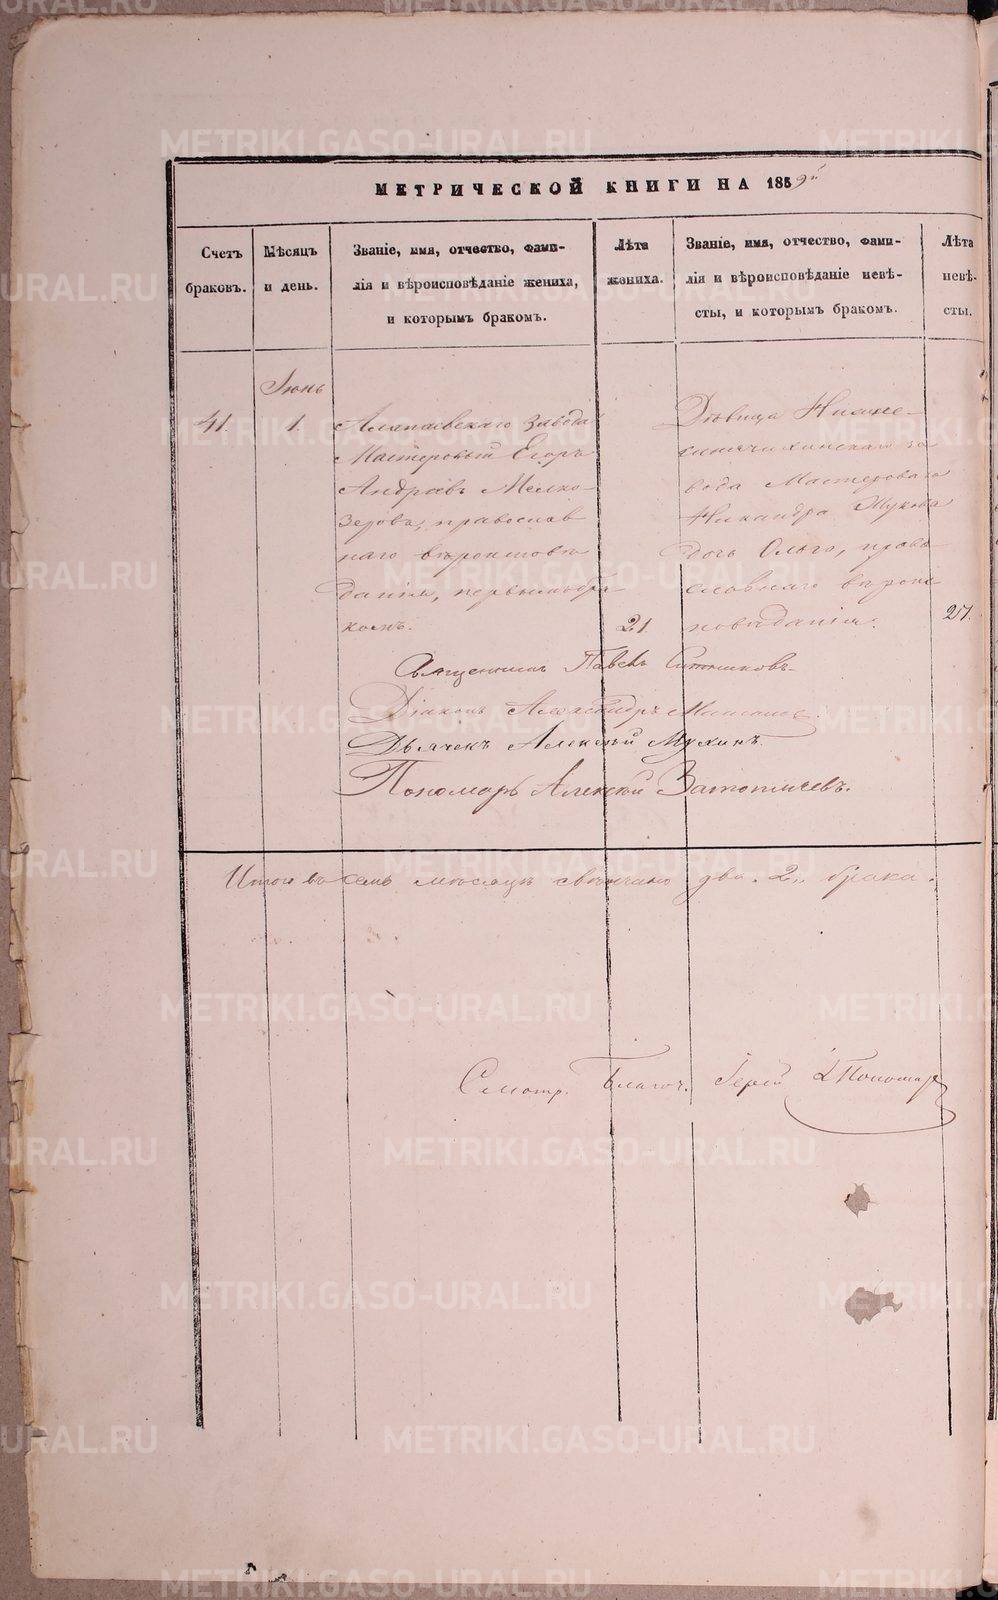 МЕТРИЧЕСКОЙ КНИГИ НА 1859й
Счетъ браковъ.
Мѣсяцъ и день.
Званіе, имя, отчество, фами-
лія и вѣроисповѣданіе жениха,
и которымъ бракомъ.
Лѣта жениха.
Званіе, имя, отчество, фами-
лія и вѣроисповѣданіе невѣ-
сты, и которымъ бракомъ.
Лѣта невѣ-
сты.
41.
Іюнь
1.
Алапаевскаго завода
Мастеровый Егоръ
Андреевъ Мелко-
зеровъ, православ
наго вѣроисповѣ
данія, первымъ бра-
комъ.
21.
Дѣвица Нижне-
синячихинскаго за
вода Мастероваго
Никандра Жукова
дочь Ольга, право
славнаго вѣроис
повѣданія.
27.
Священникъ Павелъ Ситниковъ
Діаконъ Александръ
Дьячекъ Алексѣй Мухинъ.
Пономарь Алексѣй Затопляевъ.
Итого въ семъ мѣсяцѣ свѣнчано два. 2. брака.
Смотр. Благоч. Іерей І Пономар
METRIKI.GASO-URAL.RU